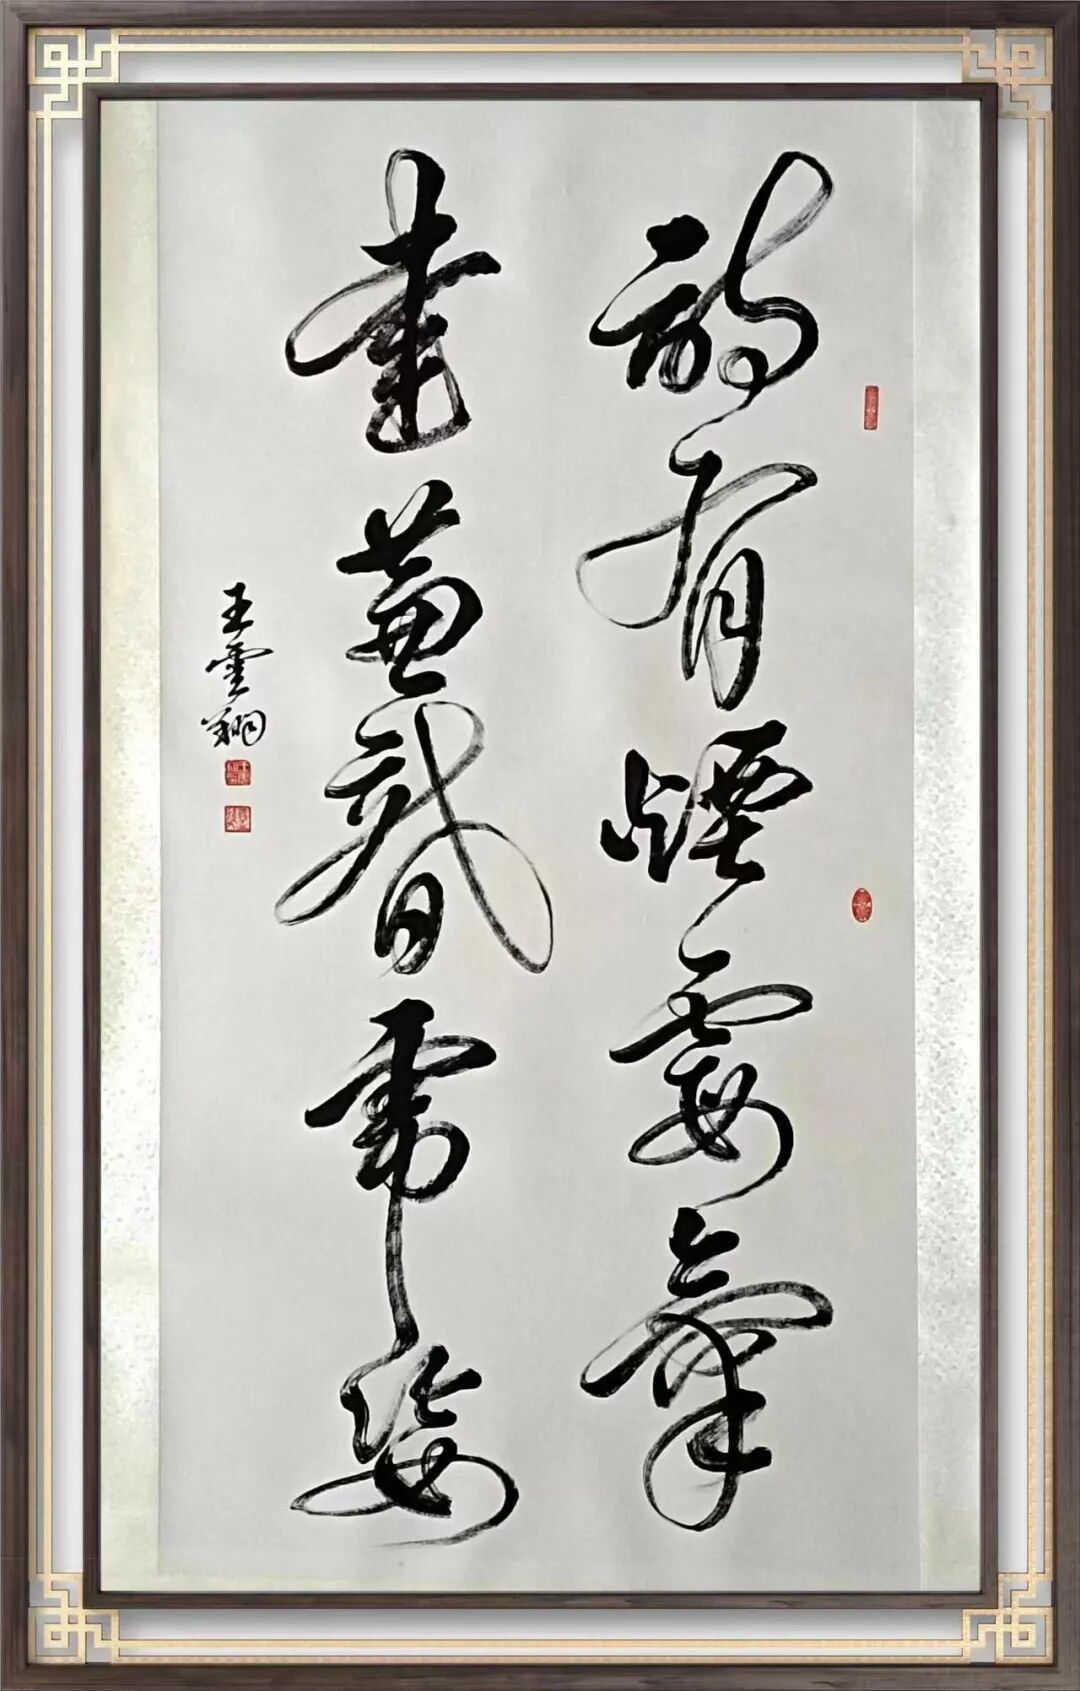 詩有煙霞氣
書兼龍虎姿
王雲翔